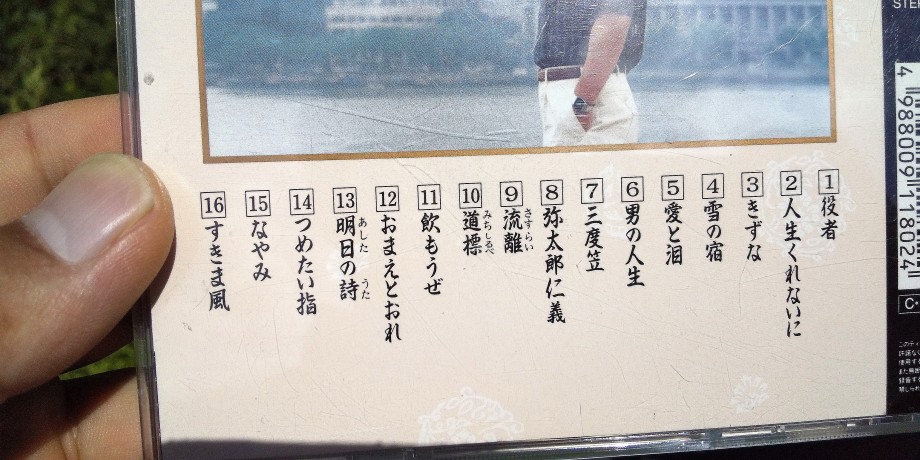 1 役者
2 人生くれないに
3 きずな
4 雪の宿
5 愛と泪
6 男の人生
7 三度笠
8 弥太郎仁義
9 流離 さすらい
10 道標 みちしるべ
11 飲もうぜ
12 おまえとおれ
13 明日の詩 あした うた
14 つめたい指
15 なやみ
16 すきま風
4 988009 118024